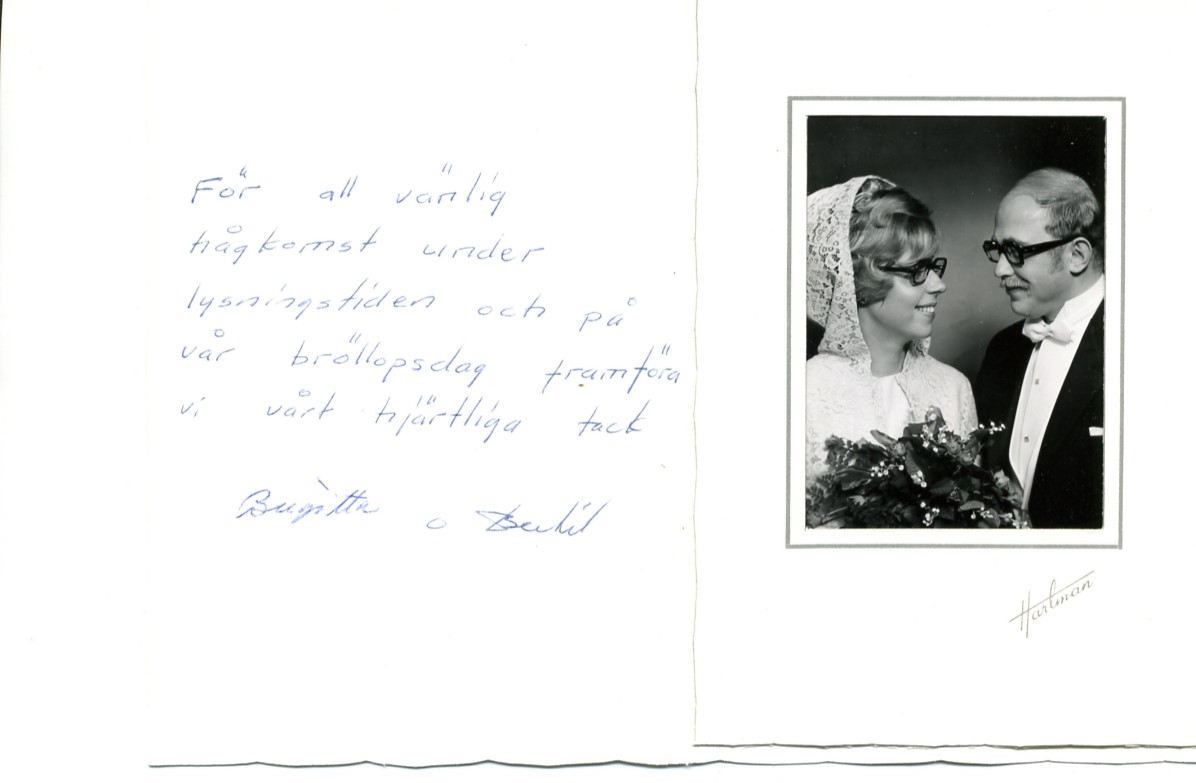 För all vänlig
hågkomst under
lysningstiden och på
vår bröllopsdag framföra
vi vårt hjärtliga tack
Birgitta o Bertil
Hartman